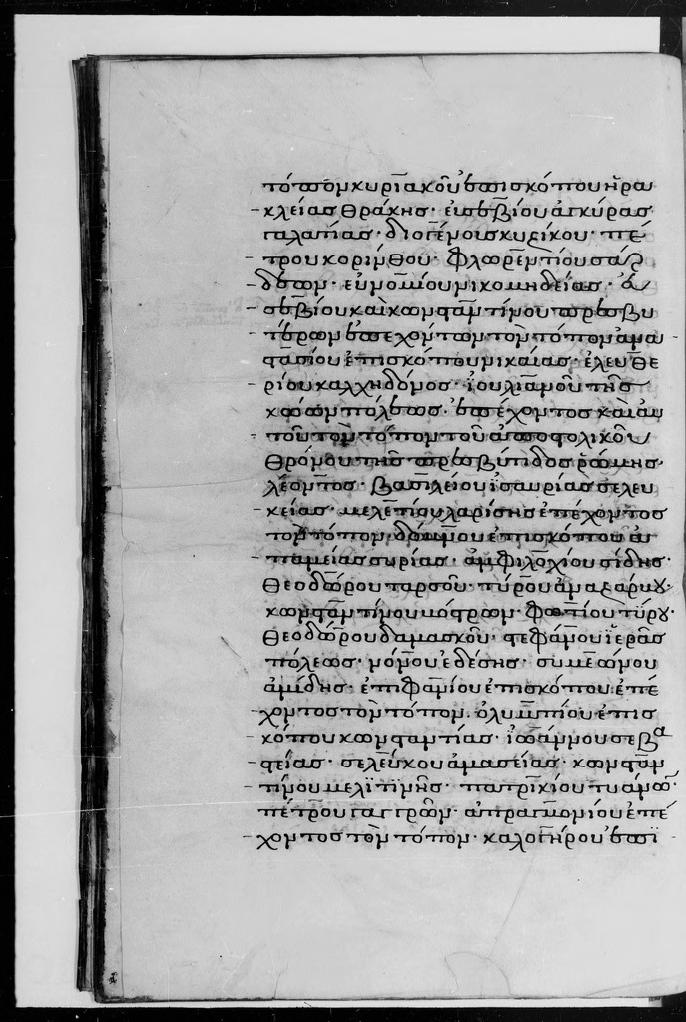 τόπον κυριακοῦ ἐπισκόπου ἡρα
κλείας θράκης· εὐσεβίου ἀγκύρας
γαλατίας· διογένους κυζίκου· πέ
τρου κορίνθου· φλωρεντίου σάρ
δεων· εὐνομίου νικομηδείας· ἀ
νασίου ἐπισκόπου νικαίας· ἐλευθε
ρίου καλχηδόνος· ἰουλιανοῦ τῆς
κώων πόλεως· ἐπέχοντος καὶ αὐ
τοῦ τὸν τόπον τοῦ ἀποστολικοῦ
θρόνου τῆς πρεσβύτιδος ῥώμης·
λέοντος· βασιλείου ἰσαυρίας σελευ
κείας· μελετίου λαρίσης ἐπέχοντος
τὸν τόπον δόμνου ἐπισκόπου ἀ
παμείας συρίας· ἀμφιλοχίου σίδης·
θεοδώρου ταρσοῦ· κύρου ἀναζάρβου·
κωνσταντίνου βόστρων· φωτίου τύρου·
θεοδώρου δαμασκοῦ· στεφάνου ἱερᾶς
πόλεως· νόννου ἐδέσης· συμεώνου
ἀμίδης· ἐπιφανίου ἐπισκόπου ἐπέ
χοντος τὸν τόπον ὀλυμπίου ἐπισ
κόπου κωνσταντίας· ἰωάννου σεβα
στείας· σελεύκου ἀμασείας· κωνσταν
τίνου μελϊτινῆς· πατρικίου τυάνων·
πέτρου γαγγρῶν· ἀπραγμονίου ἐπέ
χοντος τὸν τόπον· καλογήρου ἐπι